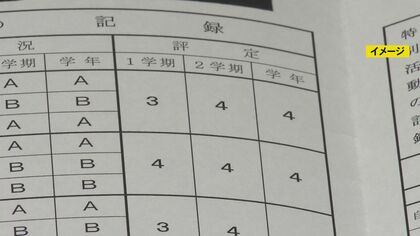 の記録
イメージ
況 評定
学期 学年 1学期 2学期 学年
A A 3 4 4
B B
A A
B B 4 4 4
B B
B B
A A 3 4 4
B B
特別活動の記録